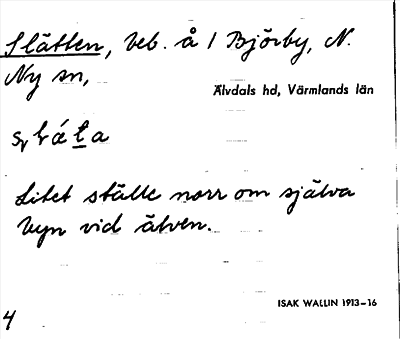 Slätten, beb. å 1 Björby, N.
Ny sn,
Älvdals hd, Värmlands län
Litet ställe norr om själva
byn vid älven.
ISAK WALLIN 1913-16
4